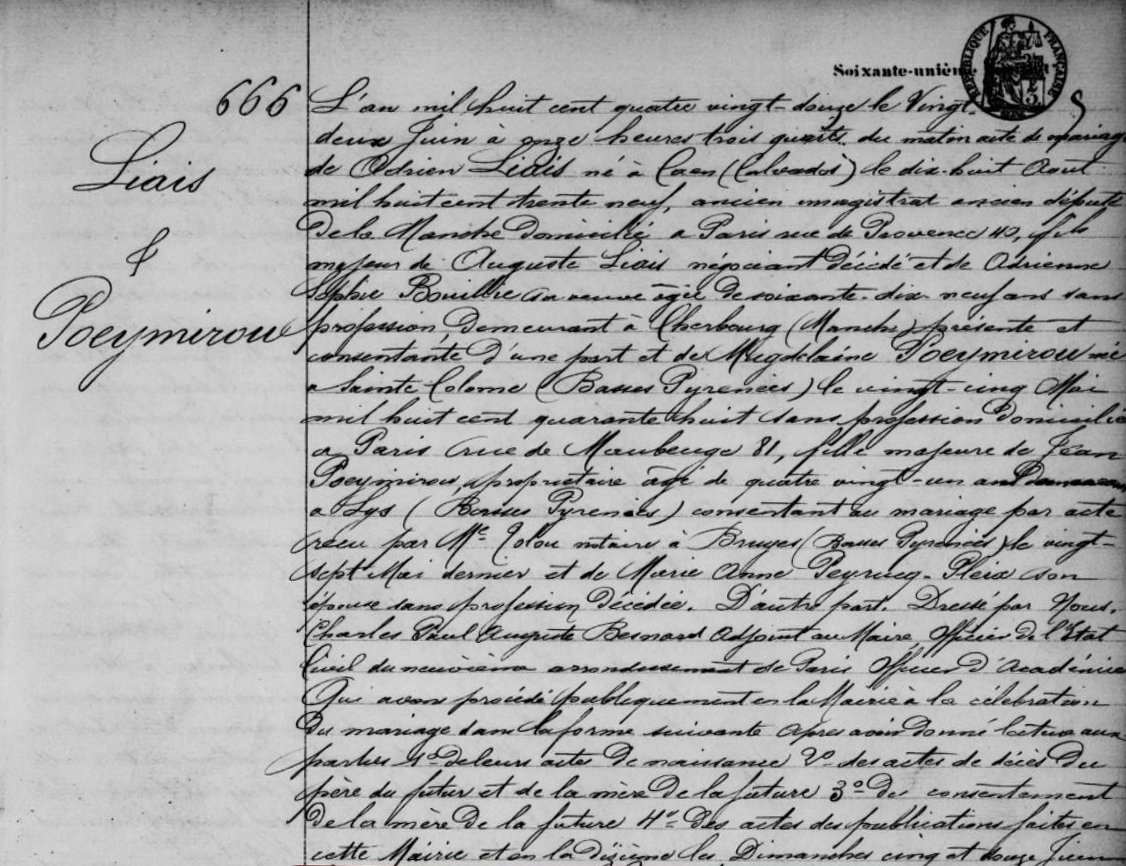 Soixante-unième
RÉPUBLIQUE FRANÇAISE
666
Liais
&
Poeymirou
L'an mil huit cent quatre vingt-douze le Vingt-
deux Juin à onze heures trois quarts du matin acte de mariage
de Adrien Liais né à Caen (Calvados) le dix-huit Août
mil huit cent trente neuf, ancien magistrat ancien député
de la Manche domicilié a Paris rue de Provence 40, fils
majeur de Auguste Liais négociant décédé et de Adrienne
Sophie Bouillie sa veuve âgée de soixante-dix neuf ans sans
profession demeurant à Cherbourg (Manche) présente et
consentante d'une part et de Magdelaine Poeymirou née
a Sainte Colome (Basses Pyrenées) le vingt-cinq Mai
mil huit cent quarante huit sans profession domiciliée
a Paris rue de Maubeuge 81, fille majeure de Jean
Poeymirou, propriétaire âgé de quatre vingt-un ans
a Lys (Basses Pyrenées) consentant au mariage par acte
recu par Me notaire a Bruges (Basses Pyrenées) le vingt-
sept Mai dernier et de Marie Anne Peyrucq-Pleix son
épouse sans profession décédée. D'autre part. Dressé par Nous,
Charles Paul Auguste Besnard Adjoint au Maire Officier de l'Etat
Civil du neuvième arrondissement de Paris Officier d'Académie
Qui avons procédé publiquement en la Mairie à la célébration
du mariage dans la forme suivante Après avoir donné lecture aux
parties 1º de leurs actes de naissance 2º des actes de décès du
père du futur et de la mère de la future 3º du consentement
de la mère de la future 4º des actes des publications faites en
cette Mairie et en la dixième les Dimanches cinq et douze Juin